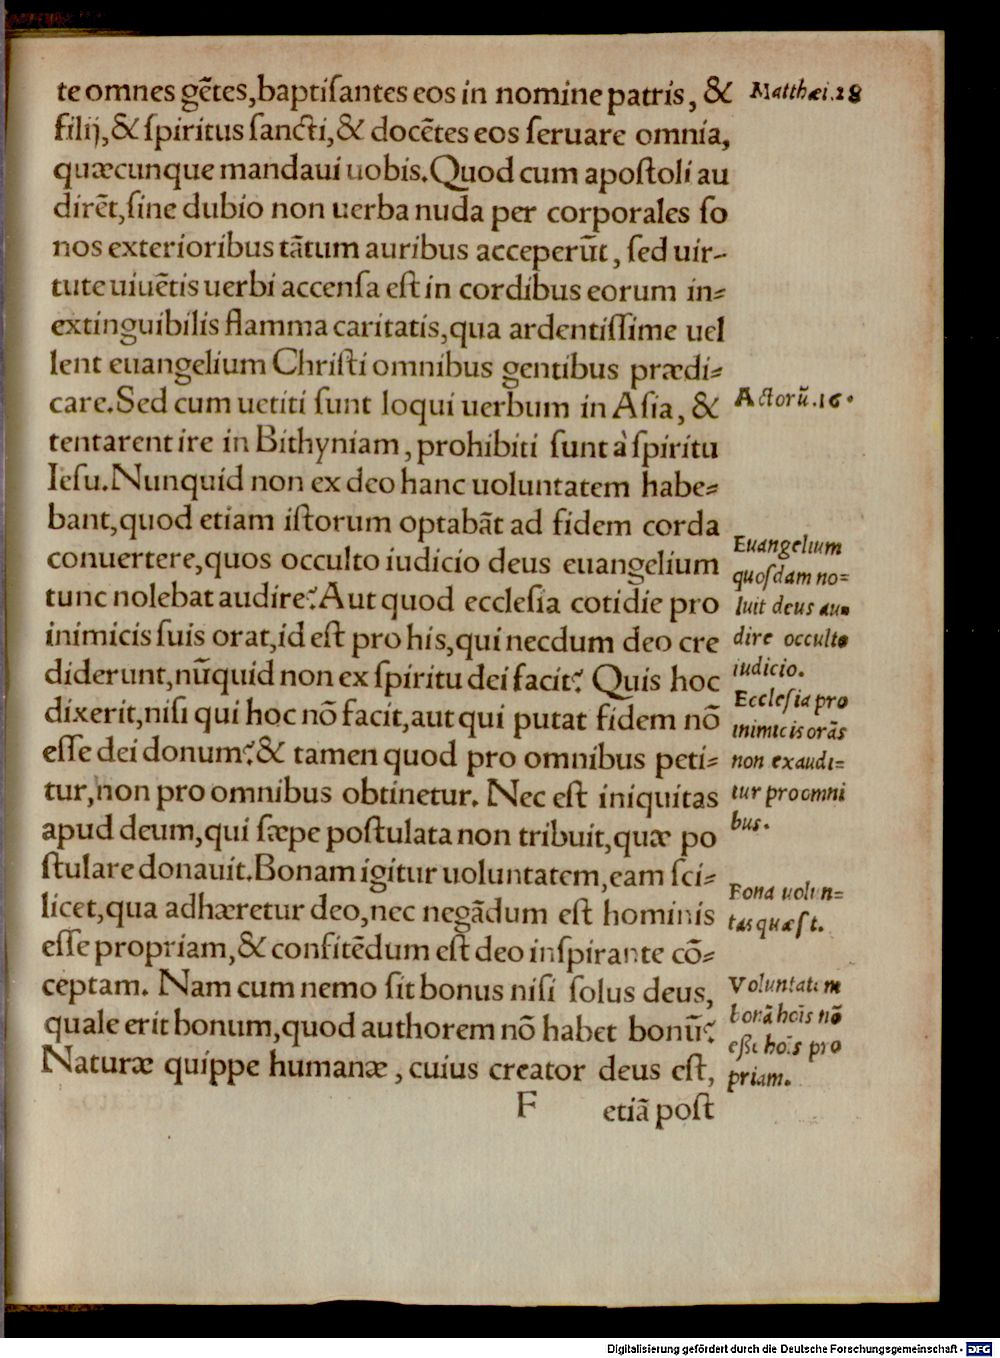 te omnes gẽtes,baptiſantes eos in nomine patris, &
filij,& ſpiritus ſancti,& docẽtes eos ſeruare omnia,
quæcunque mandaui uobis.Quod cum apoſtoli au
dirẽt,ſine dubio non uerba nuda per corporales ſo
nos exterioribus tãtum auribus acceperũt, ſed uir-
tute uiuẽtis uerbi accenſa eſt in cordibus eorum in⸗
extinguibilis flamma caritatis,qua ardentiſſime uel
lent euangelium Chriſti omnibus gentibus prædi⸗
care.Sed cum uetiti ſunt loqui uerbum in Aſia, &
tentarent ire in Bithyniam, prohibiti ſunt à ſpiritu
Ieſu.Nunquid non ex deo hanc uoluntatem habe⸗
bant,quod etiam iſtorum optabãt ad fidem corda
conuertere,quos occulto iudicio deus euangelium
tunc nolebat audire? Aut quod eccleſia cotidie pro
inimicis ſuis orat,id eſt pro his,qui necdum deo cre
diderunt,nũquid non ex ſpiritu dei facit? Quis hoc
dixerit,niſi qui hoc nõ facit,aut qui putat fidem nõ
eſſe dei donum? & tamen quod pro omnibus peti⸗
tur,non pro omnibus obtinetur. Nec eſt iniquitas
apud deum,qui ſæpe poſtulata non tribuit,quæ po
ſtulare donauit.Bonam igitur uoluntatem,eam ſci⸗
licet,qua adhæretur deo,nec negãdum eſt hominis
eſſe propriam,& confitẽdum eſt deo inſpirante cõ⸗
ceptam. Nam cum nemo ſit bonus niſi ſolus deus,
quale erit bonum,quod authorem nõ habet bonũ?
Naturæ quippe humanæ, cuius creator deus eſt,
F etiã poſt
Matthæi.28
Actorũ.16.
Euangelium
quoſdam no=
luit deus au=
dire occulto
iudicio.
Eccleſia pro
inimicis orãs
non exaudi=
tur pro omni
bus.
Bona uolun=
tas quæ ſt.
Voluntatem
bonã hoĩs nõ
eſſe hoĩs pro
priam.
Digitalisierung gefördert durch die Deutsche Forschungsgemeinschaft - DFG